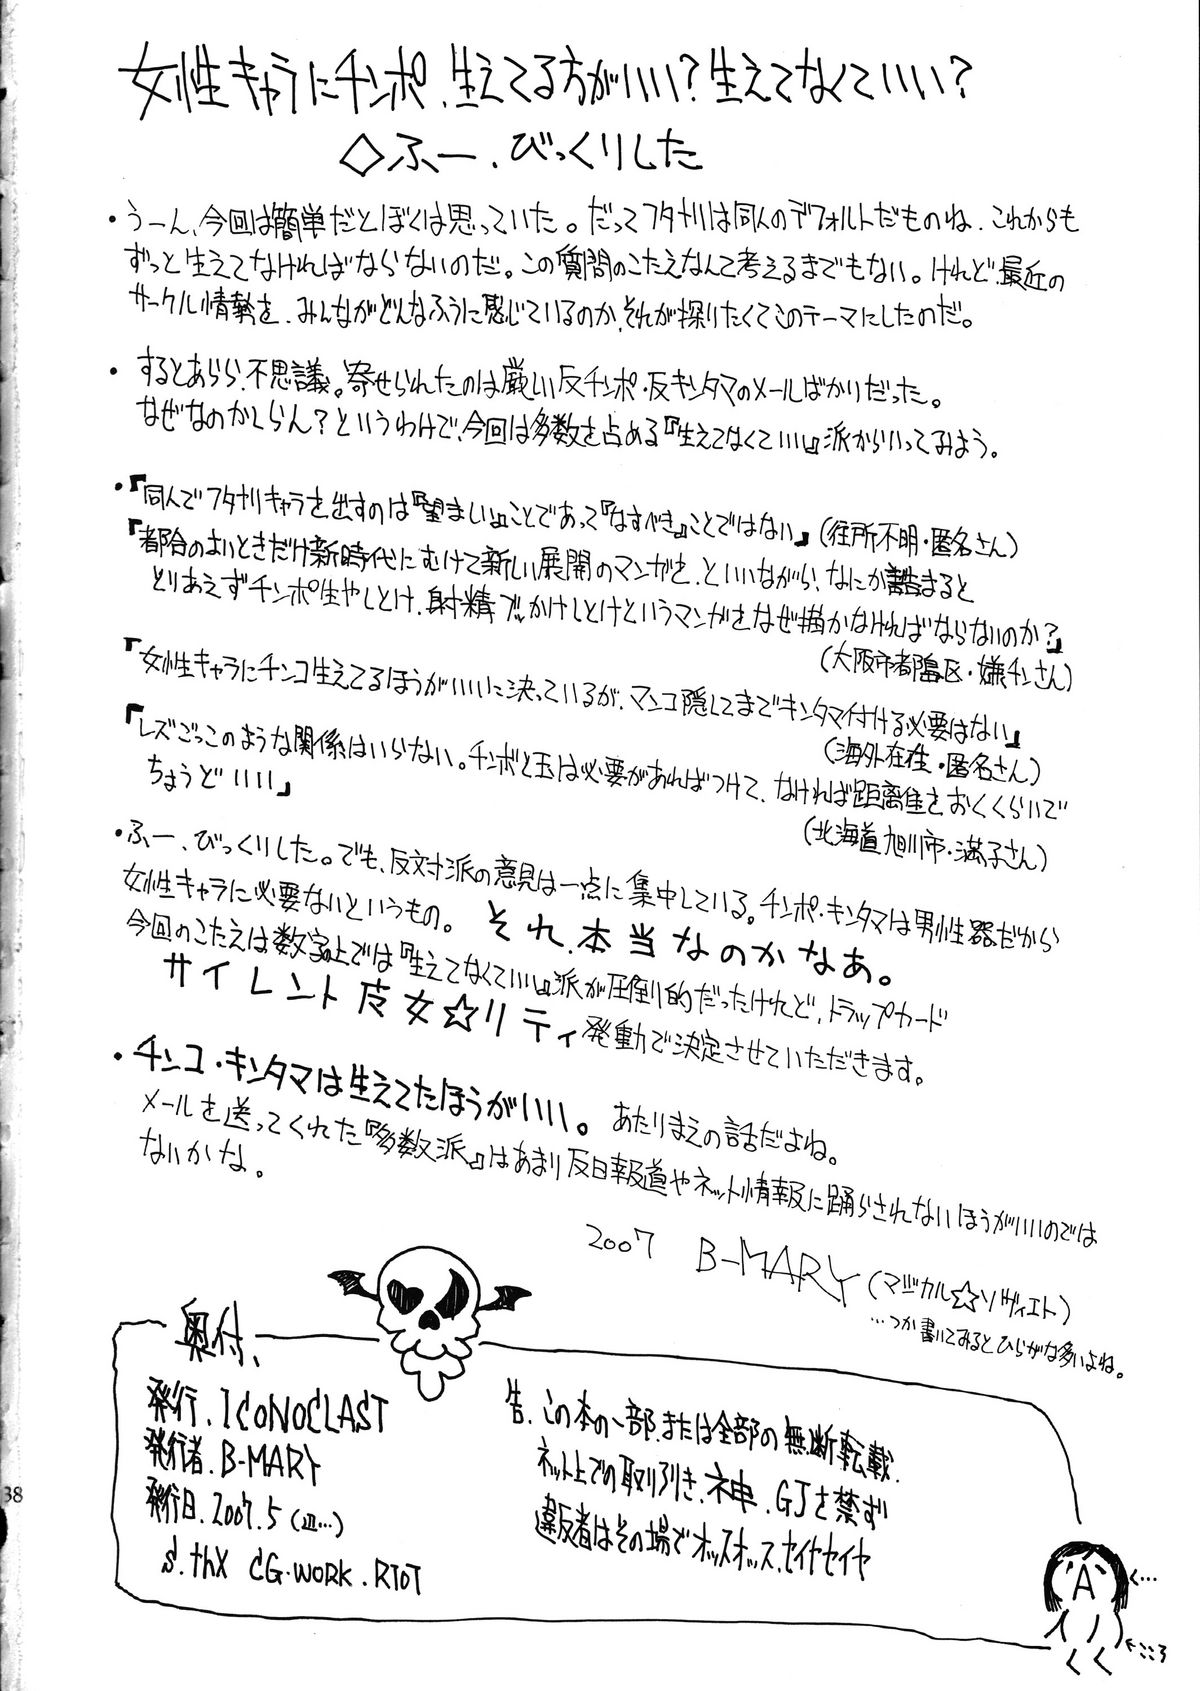 女性キャラにチンポ、生えてる方がいい?生えてなくていい?
◇ふー、びっくりした
・うーん、今回は簡単だとぼくは思っていた。だってフタナリは同人のデフォルトだものね、これからも
ずっと生えてなければならないのだ。この質問のこたえなんて考えるまでもない。けれど、最近の
サークル情勢を、みんながどんなふうに感じているのか、それが探りたくてこのテーマにしたのだ。
・するとあらら、不思議。寄せられたのは厳しい反チンポ・反キンタマのメールばかりだった。
なぜなのかしらん?というわけで、今回は多数を占める『生えてなくていい』派からいってみよう。
・『同人でフタナリキャラを出すのは『望ましい』ことであって『なすべき』ことではない』(住所不明・匿名さん)
『都合のよいときだけ新時代にむけて新しい展開のマンガを、といいながら、なにか詰まると
とりあえずチンポ生やしとけ、射精ブッかけしとけというマンガをなぜ描かなければならないのか?』
(大阪市都島区・嫌チンさん)
『女性キャラにチンコ生えてるほうがいいに決っているが、マンコ隠してまでキンタマ付ける必要はない』
(海外在住・匿名さん)
『レズごっこのような関係はいらない。チンポと玉は必要があればつけて、なければ距離をおくくらいで
ちょうどいい』
(北海道旭川市・満子さん)
・ふー、びっくりした。でも、反対派の意見は一点に集中している。チンポ・キンタマは男性器だから
女性キャラに必要ないというもの。それ、本当なのかなあ。
今回のこたえは数字上では『生えてなくていい』派が圧倒的だったけれど、トラップカード
サイレント魔女☆リティ発動で決定させていただきます。
・チンコ・キンタマは生えてたほうがいい。あたりまえの話だよね。
メールを送ってくれた『多数派』はあまり反日報道やネット情報に踊らされないほうがいいのでは
ないかな。
2007 B-MARY(マジカル☆ソヴィエト)
…つか書いてみるとひらがな多いよね。
奥付、
発行、ICONOCLAST
発行者、B-MARY
発行日、2007.5(皿…)
S.thX CG-WORK.RIOT
告、この本の一部、または全部の無断転載、
ネット上での取り引き、神、GJを禁ず
違反者はその場でオッスオッス、セイヤセイヤ
く…
←こころ
38